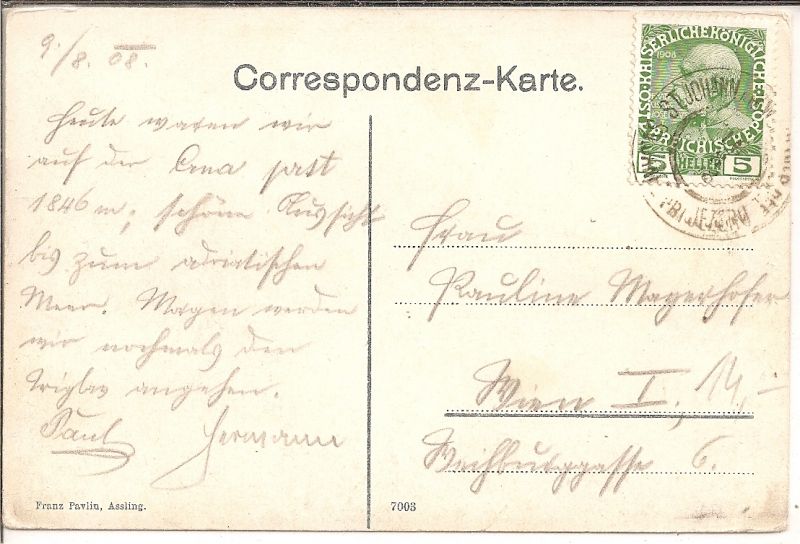 9./8. 08.
Correspondenz-Karte.
Heute waren wir
auf der Crna
1846 m; schöne Aussicht
bis zum adriatischen
Meer. Morgen werden
wir nochmals den
Triglav angehen.
Paul Hermann
KAISERLICHE KÖNIGLICHE
1908
ÖSTERREICHISCHE POST
5 HELLER 5
ST. JOHANN
JEZERU
Frau
Pauline Mayerhofer
Wien I, 14,-
Weihburggasse 6.
Franz Pavlin, Assling.
7003